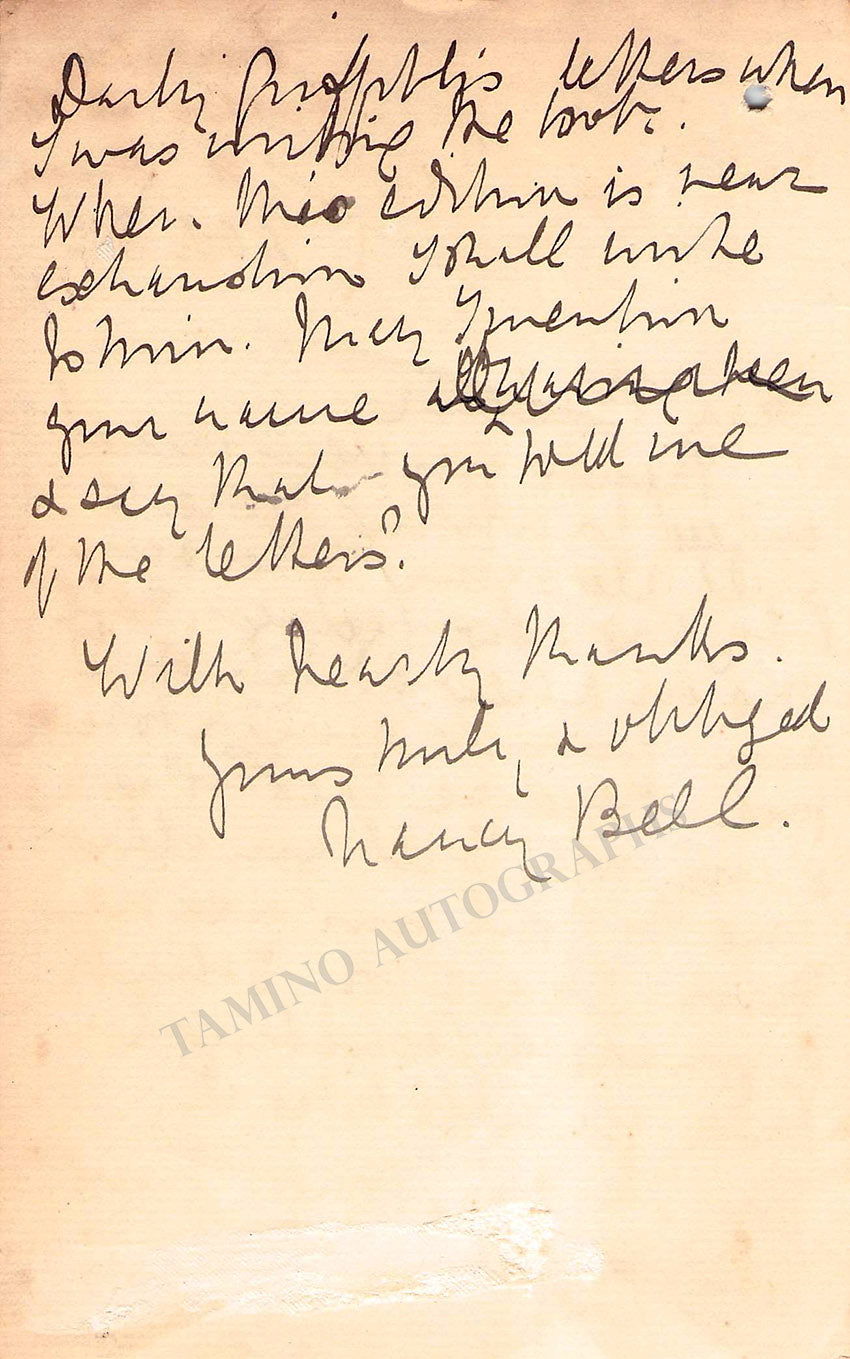 Darby Griffith's letters when
I was writing the book.
When this edition is near
exhaustion I shall write
to him. May I mention
your name
& say that you told me
of the letters?
With hearty thanks.
yours truly & obliged
Nancy Bell.
TAMINO AUTOGRAPHS